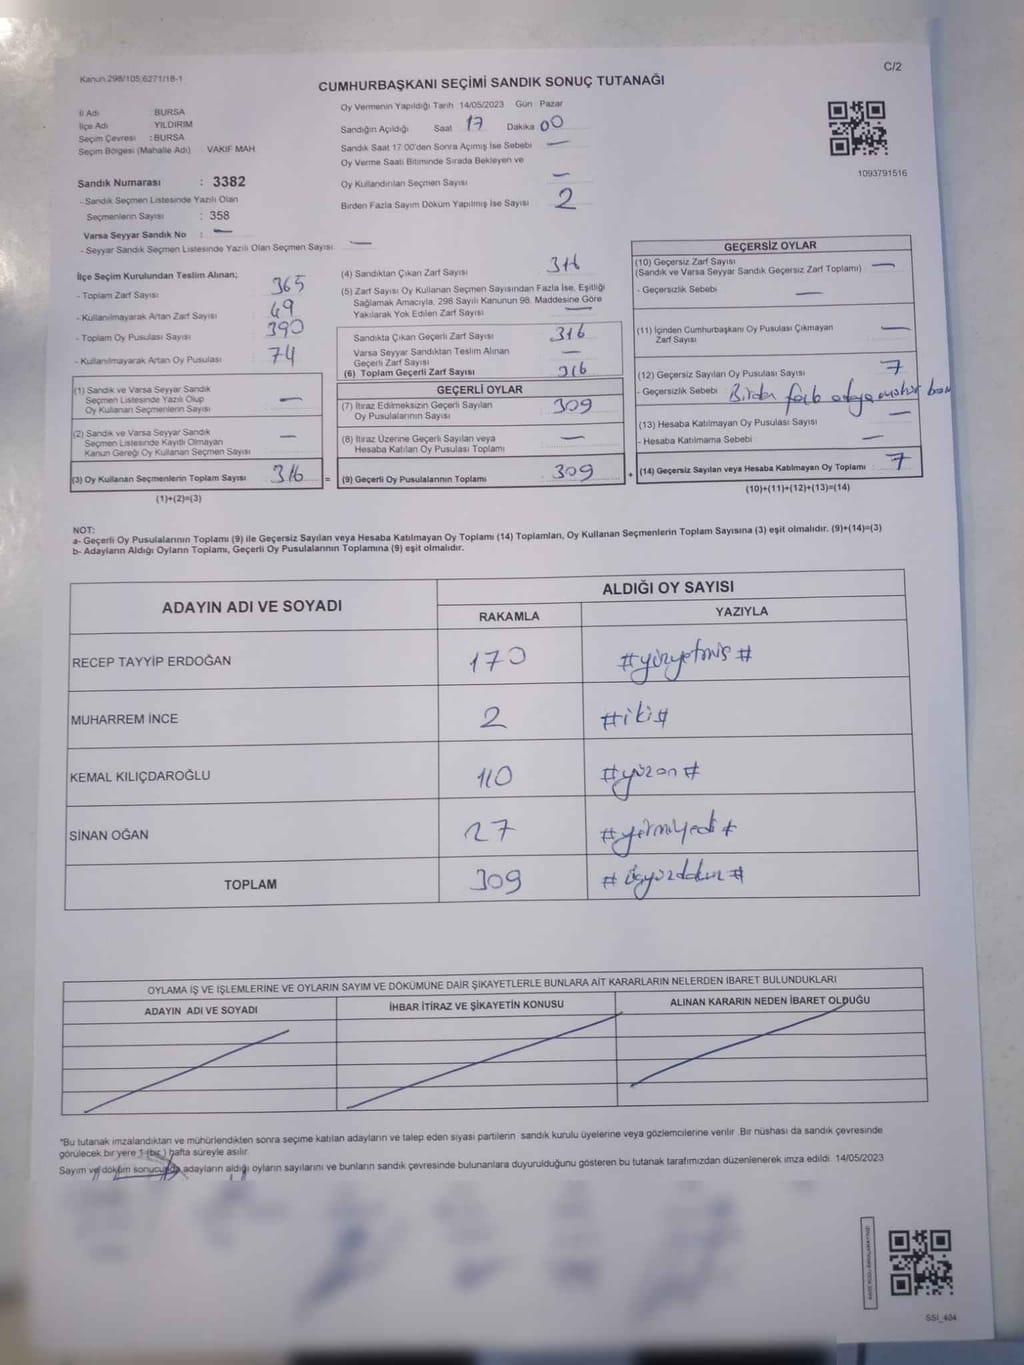 Kanun 298/105,6271/18-1
C/2
CUMHURBAŞKANI SEÇİMİ SANDIK SONUÇ TUTANAĞI
İl Adı : BURSA
İlçe Adı YILDIRIM
Seçim Çevresi : BURSA
Seçim Bölgesi (Mahalle Adı) VAKIF MAH
Oy Vermenin Yapıldığı Tarih 14/05/2023 Gün Pazar
Sandığın Açıldığı Saat 17 Dakika 00
Sandık Saat 17 00'den Sonra Açımış İse Sebebi —
Oy Verme Saati Bitiminde Sırada Bekleyen ve
Oy Kullandırılan Seçmen Sayısı —
Birden Fazla Sayım Döküm Yapılmış İse Sayısı 2
1093791516
Sandık Numarası : 3382
- Sandık Seçmen Listesinde Yazılı Olan
Seçmenlerin Sayısı : 358
Varsa Seyyar Sandık No : —
- Seyyar Sandık Seçmen Listesinde Yazılı Olan Seçmen Sayısı: —
İlçe Seçim Kurulundan Teslim Alınan;
- Toplam Zarf Sayısı 365
- Kullanılmayarak Artan Zarf Sayısı 49
- Toplam Oy Pusulası Sayısı 390
- Kullanılmayarak Artan Oy Pusulası 74
(1) Sandık ve Varsa Seyyar Sandık
Seçmen Listesinde Yazılı Olup
Oy Kullanan Seçmenlerin Sayısı —
(2) Sandık ve Varsa Seyyar Sandık
Seçmen Listesinde Kayıtlı Olmayan
Kanun Gereği Oy Kullanan Seçmen Sayısı —
(3) Oy Kullanan Seçmenlerin Toplam Sayısı 316 =
(1)+(2)=(3)
(4) Sandıktan Çıkan Zarf Sayısı 316
(5) Zarf Sayısı Oy Kullanan Seçmen Sayısından Fazla İse, Eşitliği
Sağlamak Amacıyla, 298 Sayılı Kanunun 98. Maddesine Göre
Yakılarak Yok Edilen Zarf Sayısı —
Sandıkta Çıkan Geçerli Zarf Sayısı 316
Varsa Seyyar Sandıktan Teslim Alınan
Geçerli Zarf Sayısı —
(6) Toplam Geçerli Zarf Sayısı 316
GEÇERLİ OYLAR
(7) İtiraz Edilmeksizin Geçerli Sayılan
Oy Pusulalarının Sayısı 309
(8) İtiraz Üzerine Geçerli Sayılan veya
Hesaba Katılan Oy Pusulası Toplamı —
(9) Geçerli Oy Pusulalarının Toplamı 309 +
GEÇERSİZ OYLAR
(10) Geçersiz Zarf Sayısı
(Sandık ve Varsa Seyyar Sandık Geçersiz Zarf Toplamı) —
- Geçersizlik Sebebi —
(11) İçinden Cumhurbaşkanı Oy Pusulası Çıkmayan
Zarf Sayısı —
(12) Geçersiz Sayılan Oy Pusulası Sayısı 7
- Geçersizlik Sebebi Birden
(13) Hesaba Katılmayan Oy Pusulası Sayısı —
- Hesaba Katılmama Sebebi —
(14) Geçersiz Sayılan veya Hesaba Katılmayan Oy Toplamı 7
(10)+(11)+(12)+(13)=(14)
NOT:
a- Geçerli Oy Pusulalarının Toplamı (9) ile Geçersiz Sayılan veya Hesaba Katılmayan Oy Toplamı (14) Toplamları, Oy Kullanan Seçmenlerin Toplam Sayısına (3) eşit olmalıdır. (9)+(14)=(3)
b- Adayların Aldığı Oyların Toplamı, Geçerli Oy Pusulalarının Toplamına (9) eşit olmalıdır.
ADAYIN ADI VE SOYADI
ALDIĞI OY SAYISI
RAKAMLA YAZIYLA
RECEP TAYYİP ERDOĞAN 170 #yüzyetmiş#
MUHARREM İNCE 2 #iki#
KEMAL KILIÇDAROĞLU 110 #yüzon#
SİNAN OĞAN 27 #yirmiyedi#
TOPLAM 309 #üçyüzdokuz#
OYLAMA İŞ VE İŞLEMLERİNE VE OYLARIN SAYIM VE DÖKÜMÜNE DAİR ŞİKAYETLERLE BUNLARA AİT KARARLARIN NELERDEN İBARET BULUNDUKLARI
ADAYIN ADI VE SOYADI İHBAR İTİRAZ VE ŞİKAYETİN KONUSU ALINAN KARARIN NEDEN İBARET OLDUĞU
"Bu tutanak imzalandıktan ve mühürlendikten sonra seçime katılan adayların ve talep eden siyasi partilerin sandık kurulu üyelerine veya gözlemcilerine verilir. Bir nüshası da sandık çevresinde
görülecek bir yere 1 (bir) hafta süreyle asılır.
Sayım ve döküm sonucunda adayların aldığı oyların sayılarını ve bunların sandık çevresinde bulunanlara duyurulduğunu gösteren bu tutanak tarafımızdan düzenlenerek imza edildi. 14/05/2023
SSI_404